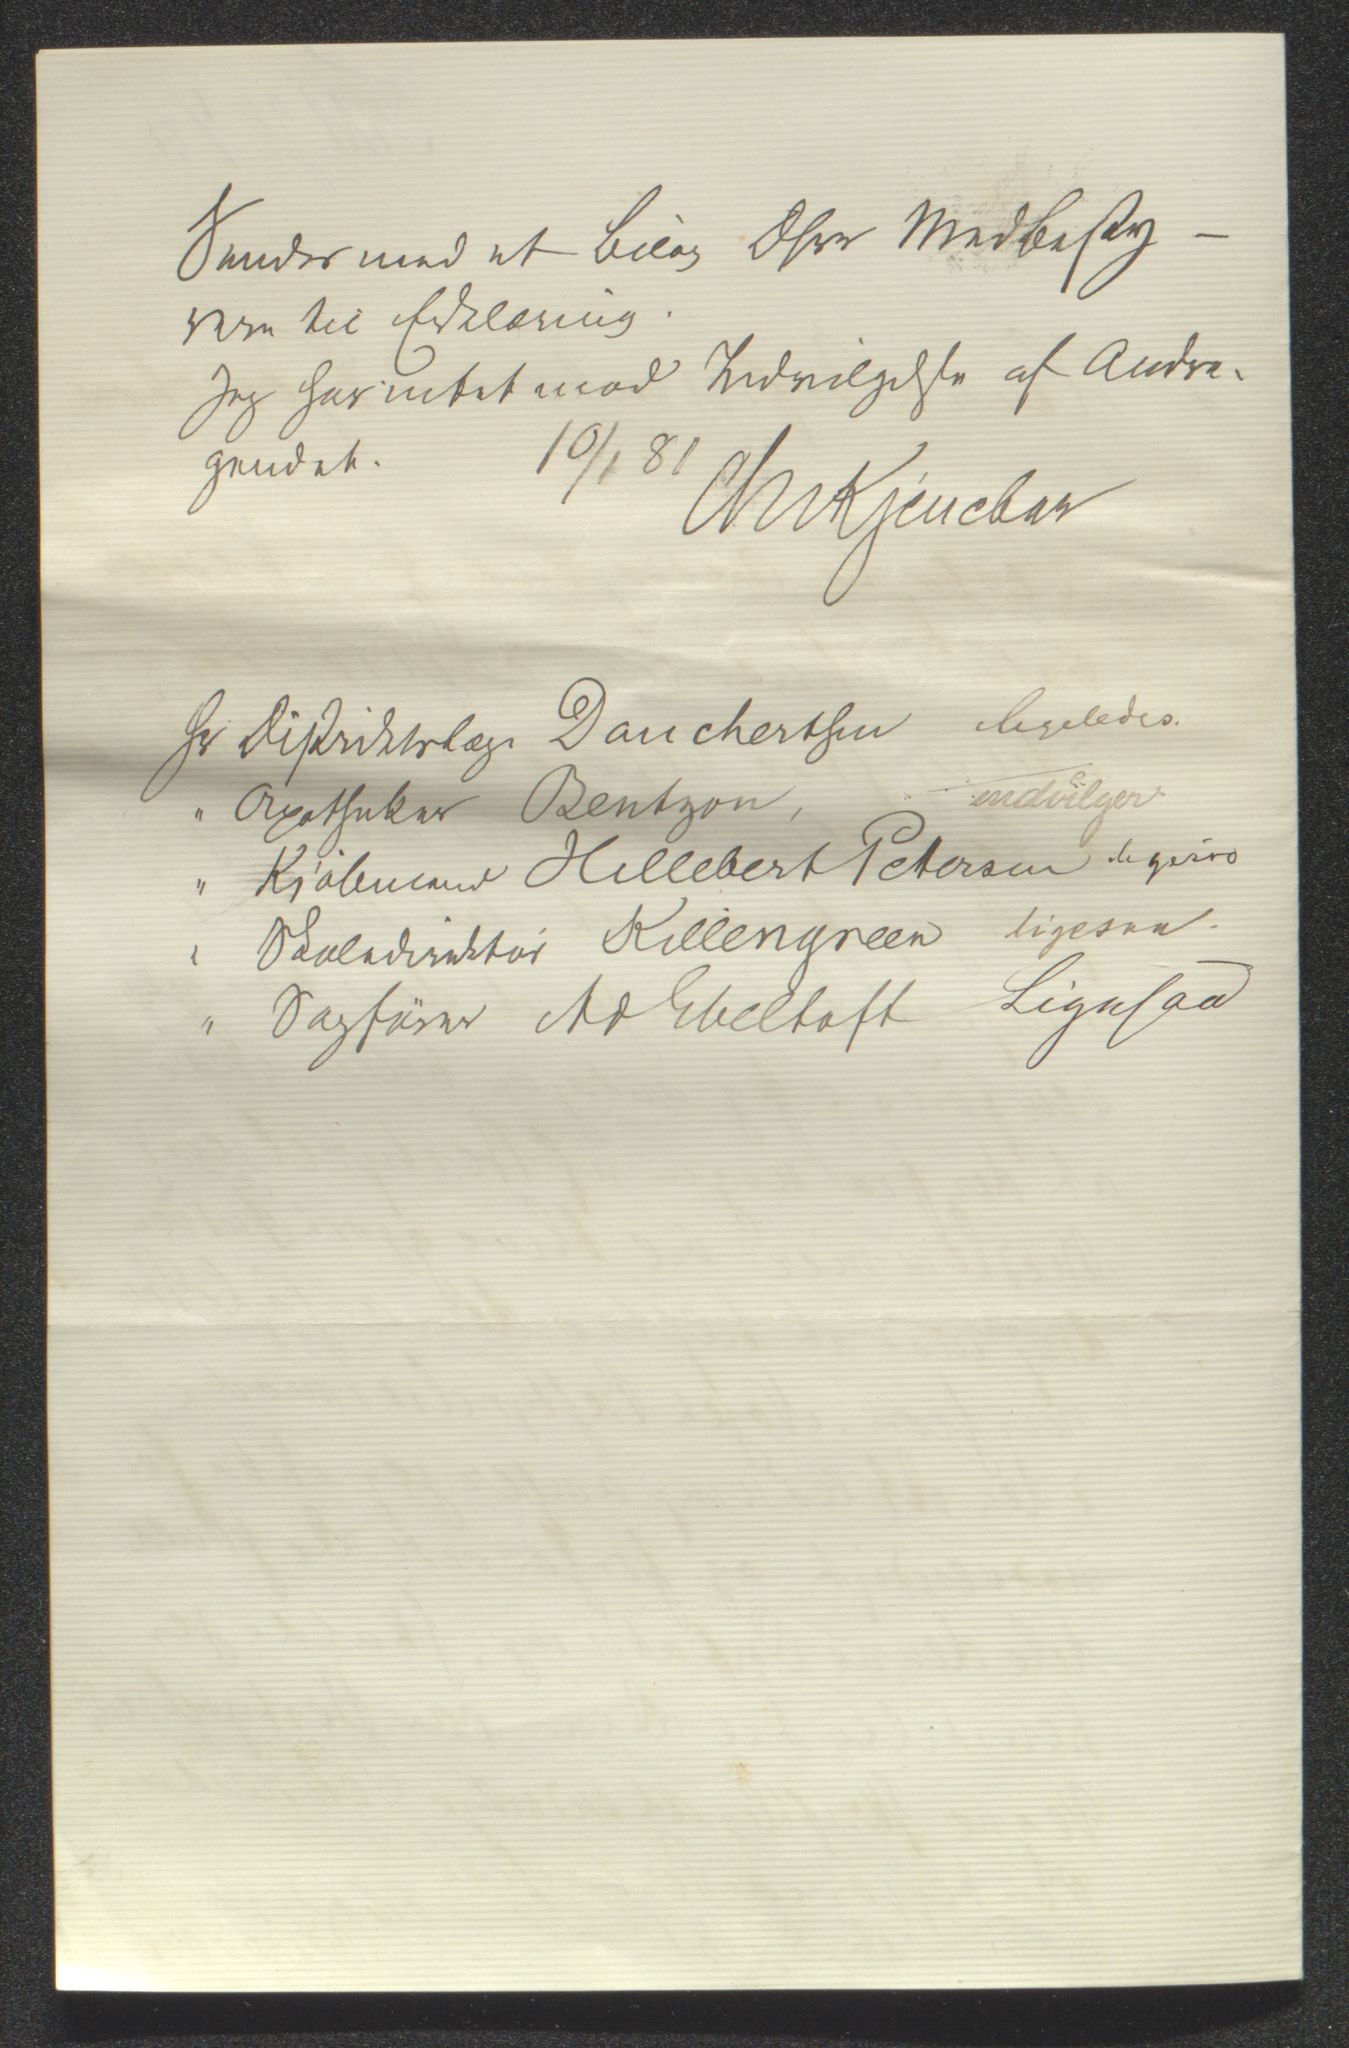 Sendes med et Bilag DHrr Medbesty-
rere til Erklæring.
Jeg har intet mod Indvilgelse af Andra-
gendet. 10/1 81
Hr Distriktslæge Danchertsen ligeledes.
" Apotheker Bentzon, indvilger
" Kjöbmand Hillebert Petersen
" Skoledirektör Killengreen ligesaa.
" Sagförer Ad Ebeltoft Ligesaa